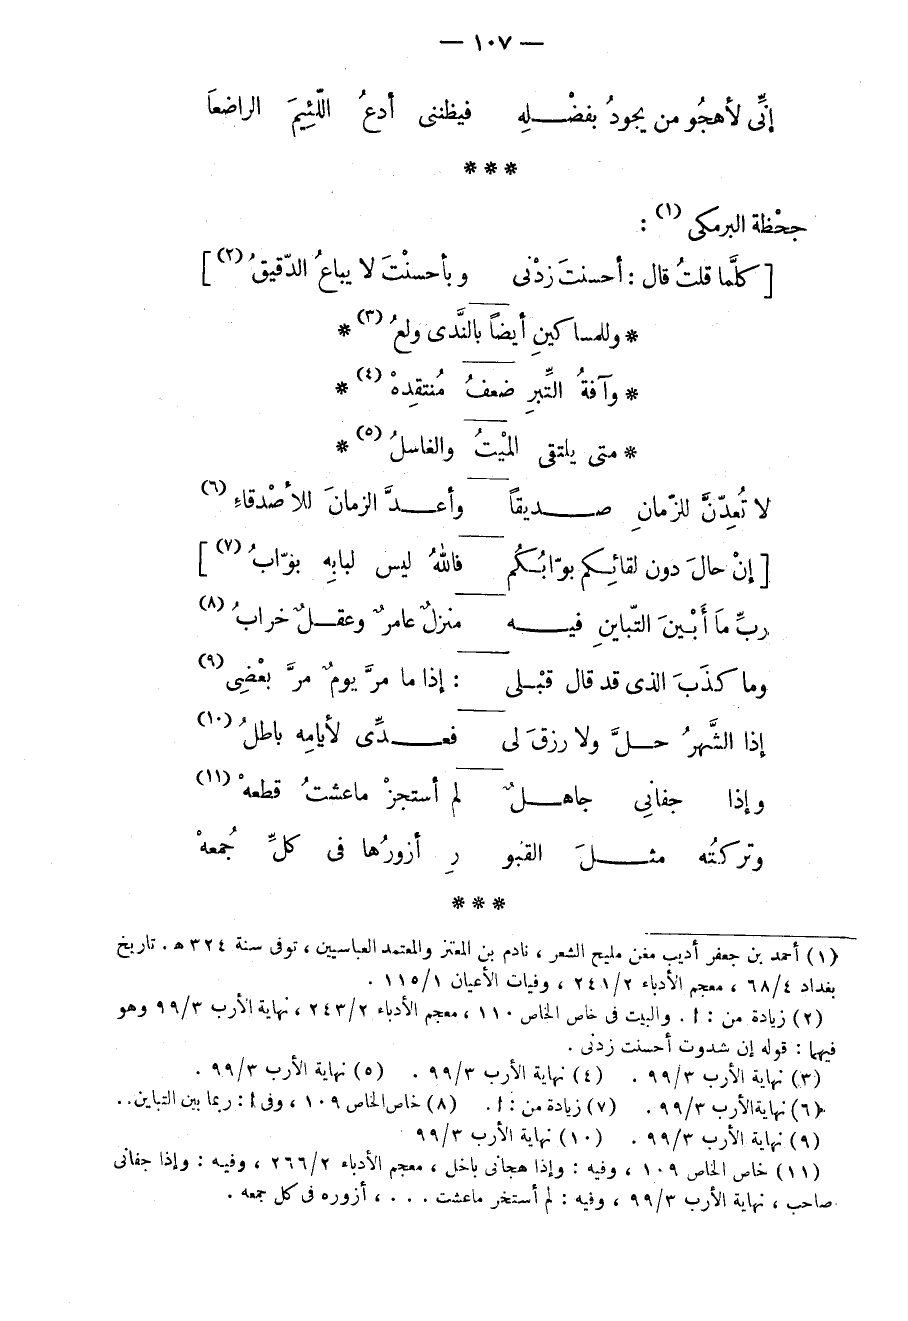 — ١٠٧ —
إنِّى لأهجُو من يجودُ بفضْـــلِه فيظننى أدعُ اللّئيمَ الراضعاَ
* * *
جحْظة البرمكى (١) :
[ كلَّما قلتُ قال : أحسنتَ زدْنى وبأحسنْتَ لا يباعُ الدّقيقُ (٢) ]
* وللمساكينِ أيضاً بالنَّدى ولعُ (٣) *
* وآفةُ التِّبرِ ضعفُ مُنتقِدِهْ (٤) *
* متى يلتقى الميْتُ والغاسلُ (٥) *
لا تُعدِّنَّ للزّمانِ صـــديقاً وأعـــدَّ الزمانَ للأصْدقاءِ (٦)
[ إنْ حالَ دون لقائِكم بوّابُكُم فاللهُ ليس لبابِه بوّابُ (٧) ]
ربِّ مَا أَبْينَ التّباينِ فيـــه منزلٌ عامرٌ وعقـــلٌ خرابُ (٨)
وما كذَبَ الذى قد قال قبْـلى : إذا ما مرَّ يومٌ مرَّ بعْضِى (٩)
إذا الشَّهرُ حـــلَّ ولا رزقَ لى فعـــدِّى لأيامِه باطلُ (١٠)
وإذا جفانِي جاهـــلٌ لم أستجزْ ماعشتُ قطعهْ (١١)
وتركتُه مثـــلَ القبو رِ أزورُها فى كلِّ جُمعهْ
* * *
(١) أحمد بن جعفر أديب مغن مليح الشعر ، نادم بن المعتز والمعتمد العباسيين ، توفى سنة ٣٢٤ هـ . تاريخ
بغداد ٦٨/٤ ، معجم الأدباء ٢٤١/٢ ، وفيات الأعيان ١١٥/١ .
(٢) زيادة من : ا . والبيت فى خاص الخاص ١١٠ ، معجم الأدباء ٢٤٣/٢ ، نهاية الأرب ٩٩/٣ وهو
فيهما : قوله إن شدوت أحسنت زدنى .
(٣) نهاية الأرب ٩٩/٣ . (٤) نهاية الأرب ٩٩/٣ . (٥) نهاية الأرب ٩٩/٣ .
(٦) نهاية الأرب ٩٩/٣ . (٧) زيادة من : ا . (٨) خاص الخاص ١٠٩ ، وفى ا : ربما بين التباين . .
(٩) نهاية الأرب ٩٩/٣ . (١٠) نهاية الأرب ٩٩/٣
(١١) خاص الخاص ١٠٩ ، وفيه : وإذا هجانى باخل ، معجم الأدباء ٢٦٦/٢ ، وفيه : وإذا جفانى
صاحب ، نهاية الأرب ٩٩/٣ ، وفيه : لم أستخر ماعشت . . . ، أزوره فى كل جمعه .